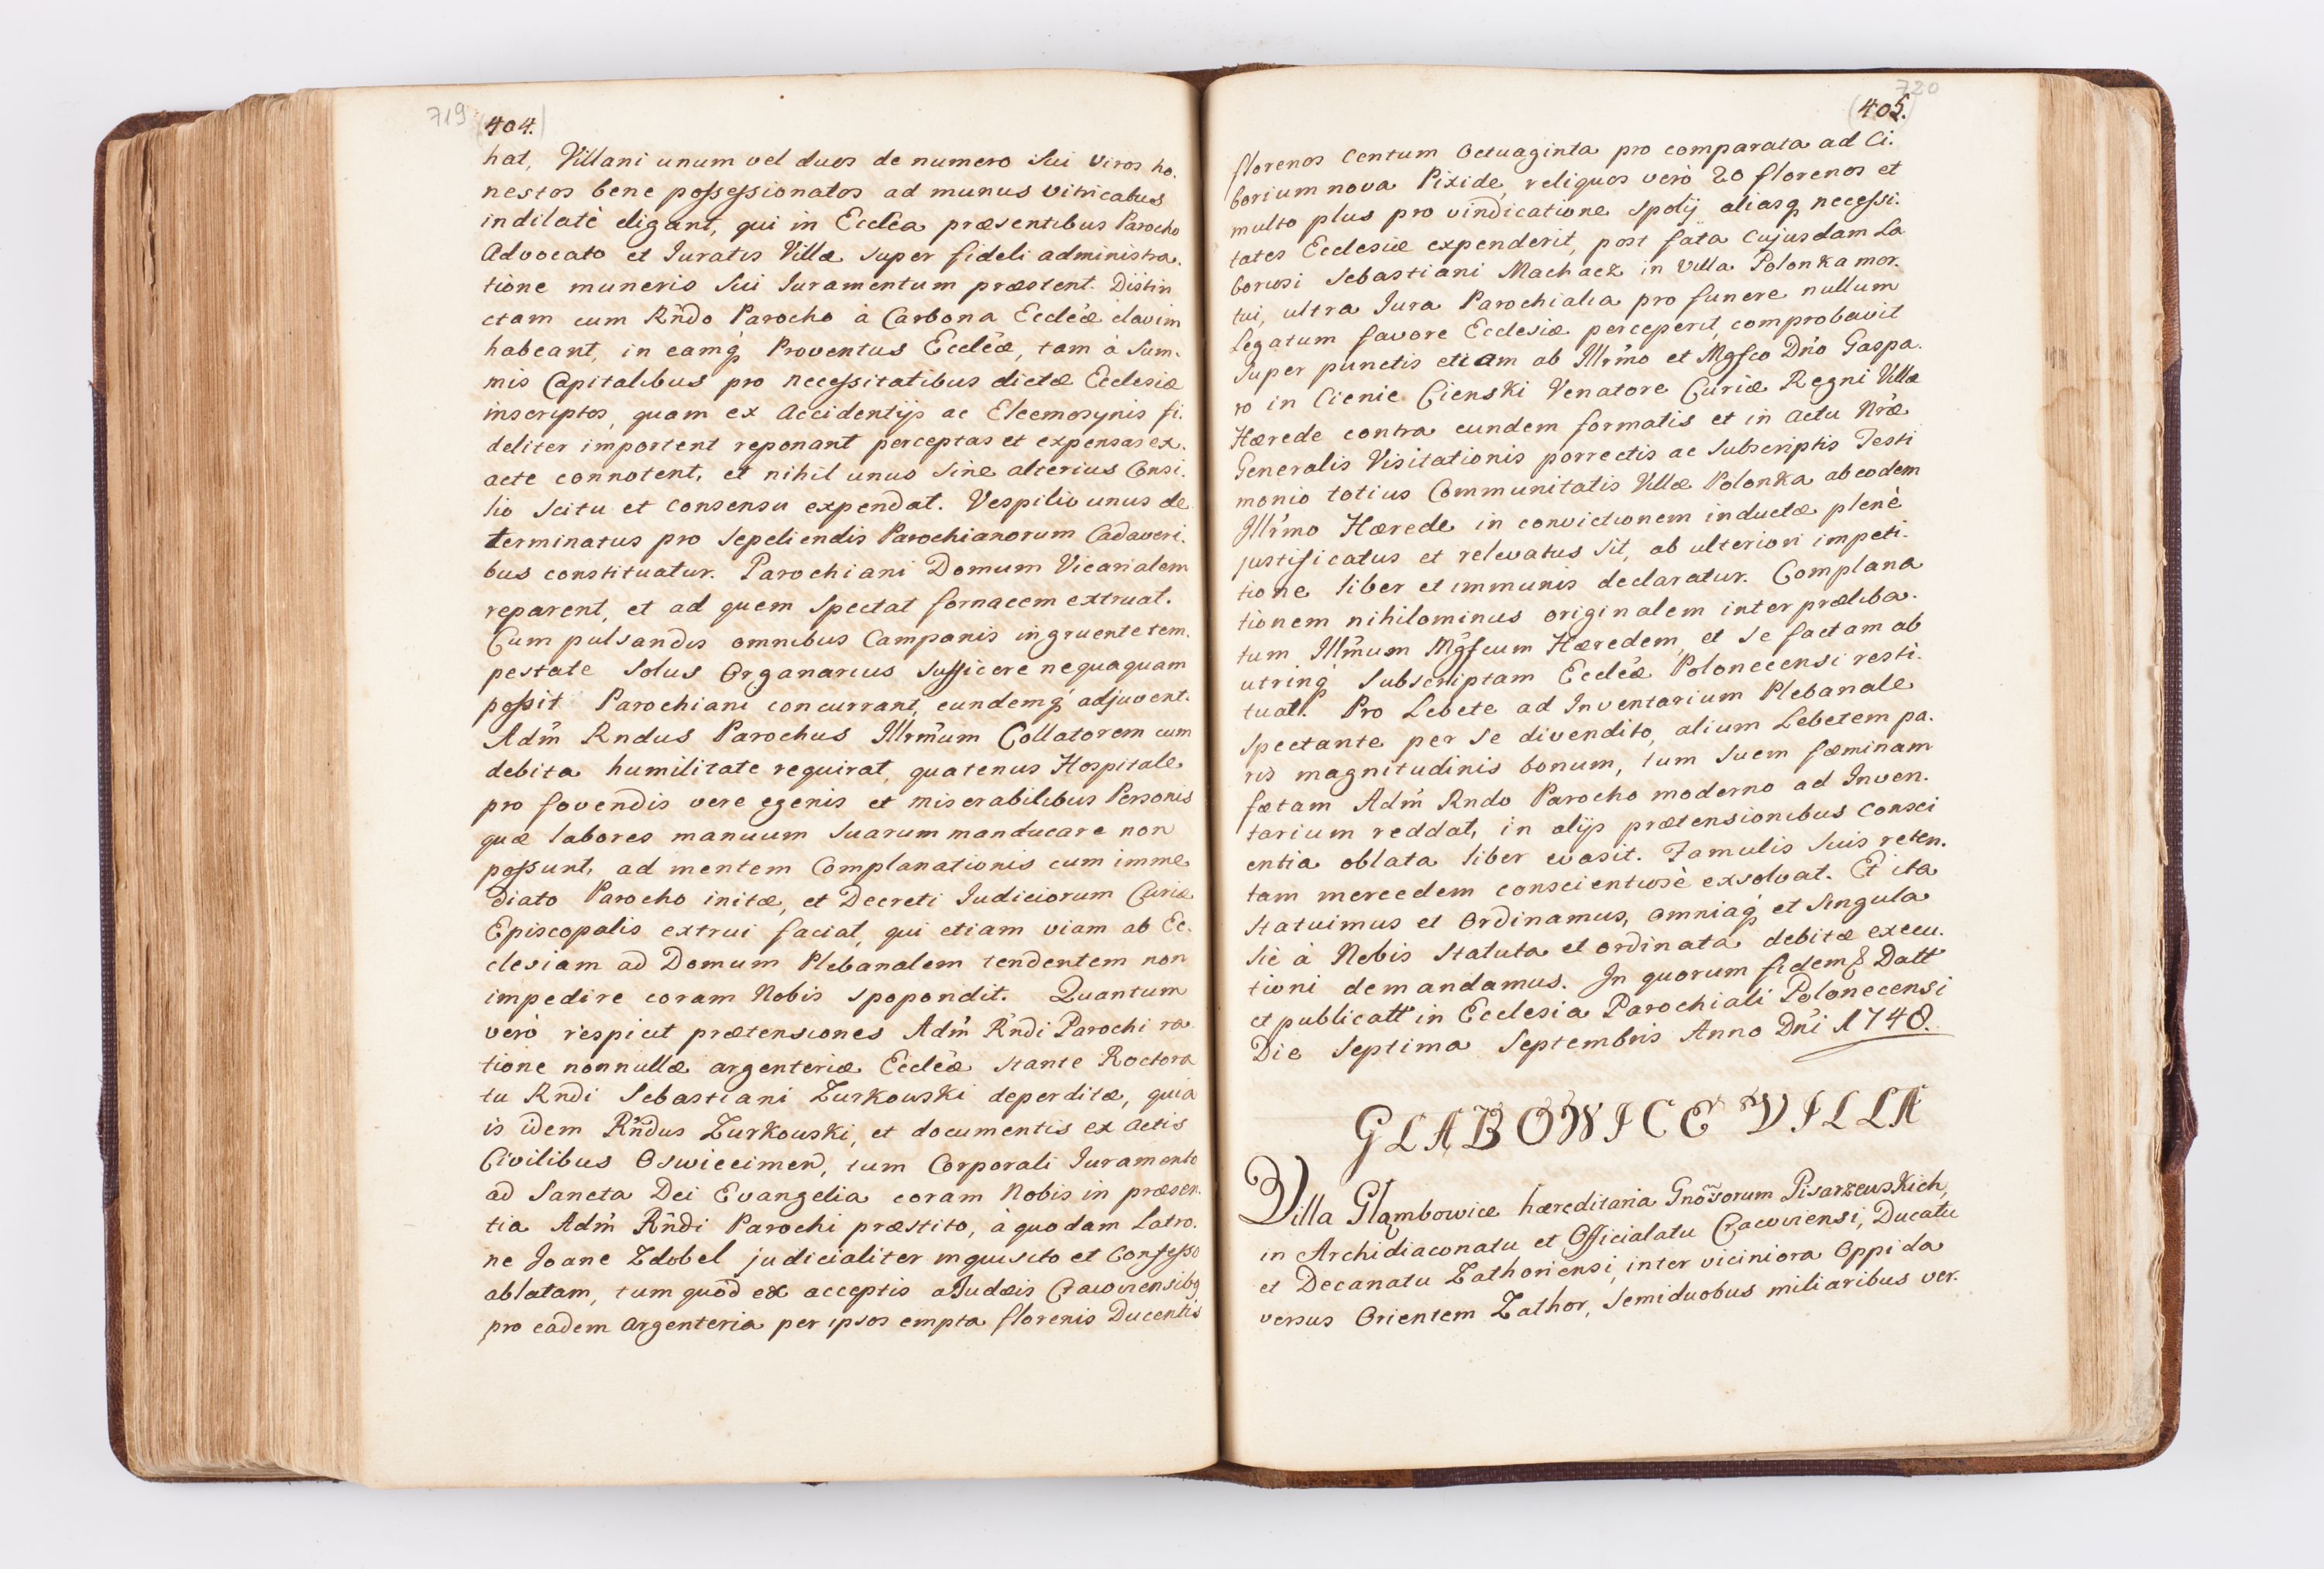 719
404.
hat, Villani unum vel duos de numero sui viros ho.
nestos bene possessionatos ad munus vitricatus
indilatè eligant, qui in Eccl̃ea præsentibus Parocho
Advocato et Juratis Villæ super fideli administra.
tione muneris sui Juramentum præstent. Distin
ctam cum Rñdo Parocho à Carbona Eccl̃eæ clavim
habeant, in eamq́ Proventus Eccl̃eæ, tam à Sum.
mis Capitalibus pro necessitatibus dictæ Ecclesiæ
inscriptos, quam ex Accidentijs ac Eleemosynis fi.
deliter important reponant perceptas et expensas ex.
acte connotent, et nihil unus sine alterius Consi.
lio scitu et consensu expendat. Vespilio unus de
terminatus pro sepeliendis Parochianorum Cadaveri.
bus constituatur. Parochiani Domum Vicarialem
reparent, et ad quem spectat fornacem extruat.
Cum pulsandis omnibus Campanis ingruente tem.
pestate solus Organarius sufficere nequaquam
possit Parochiani concurrant, eundemq́ adjuvent.
Adm̃ Rndus Parochus Illrm̃um Collatorem cum
debita humilitate requirat, quatenus Hospitale
pro fovendis vere egenis et miserabilibus Personis
quæ labores manuum suarum manducare non
possunt, ad mentem Complanationis cum imme
diato Parocho initæ, et Decreti Judiciorum Curiæ
Episcopalis extrui faciat, qui etiam viam ab Ec.
clesiam ad Domum Plebanalem tendentem non
impedire coram Nobis spopondit. Quantum
verò respicit prætensiones Adm̃ Rñdi Parochi ra
tione nonnullæ argenteriæ Eccl̃eæ stante Roctora
tu Rndi Sebastiani Zurkowski deperditæ, quia
is idem Rñdus Zurkowski, et documentis ex Actis
Civilibus Oswiecimen, tum Corporali Juramento
ad Sancta Dei Evangelia coram Nobis in præsen.
tia Adm̃ Rñdi Parochi præstito, à quodam Latro.
ne Joane Zdobel judicialiter inquisito et Confesso
ablatam, tum quòd ex acceptis a Judæis Cracoviensibg
pro eadem Argenteria per ipsos empta florenis Ducentis
720
405.
florenos Centum Octuaginta pro comparata ad Ci.
borium nova Pixide, reliquos verò 20 florenos et
multo plus pro vindicatione spolij aliasq necessi.
tates Ecclesiæ expenderit, post fata cujusdam La
boriosi Sebastiani Machacz in Villa Polonka mor.
tui, ultra Jura Parochialia pro funere nullum
Legatum favore Ecclesiæ perceperit, comprobavit
super punctis etiam ab Illrm̃o et Mgfco Dño Gaspa.
ro in Cienie Cienski Venatore Curiæ Regni Villæ
Hærede contra eundem formatis et in actu Nræ
Generalis Visitationis porrectis ac Subscriptis Testi
monio totius Communitatis Villæ Polonka ab eodem
Illrm̃o Hærede in convictionem inductæ plenè
justificatus et relevatus sit, ab ulteriori impeti.
tione liber et immunis declaratur. Complana
tionem nihilominus originalem inter præliba.
tum Illm̃um Mgfcum Hæredem, et se factam ab
utrinq́ subscriptam Eccl̃eæ Polonecensi resti.
tuat. Pro Lebete ad Inventarium Plebanale
spectante per se divendito, alium Lebetem pa.
ris magnitudinis bonum, tum suem fæminam
fætam Adm̃ Rndo Parocho moderno ad Inven.
tarium reddat, in alijs prætensionibus Consci
entia oblata liber evasit. Famulis suis reten.
tam mercedem conscientiosè exsolvat. Et ita
statuimus et Ordinamus, omniaq́ et singula
sic à Nobis statuta et ordinata debitæ execu.
tioni demandamus. In quorum fidem & Datt
et publicatt in Ecclesia Parochiali Polonecensi
Die Septima Septembris Anno Dñi 1748.
GLABOWICE VILLA
Villa Gląmbowice hæreditaria Gnõsorum Pisarzewskich,
in Archidiaconatu et Officialatu Cracoviensi, Ducatu
et Decanatu Zathoriensi, inter viciniora Oppida
versus Orientem Zathor, semiduobus miliaribus ver.